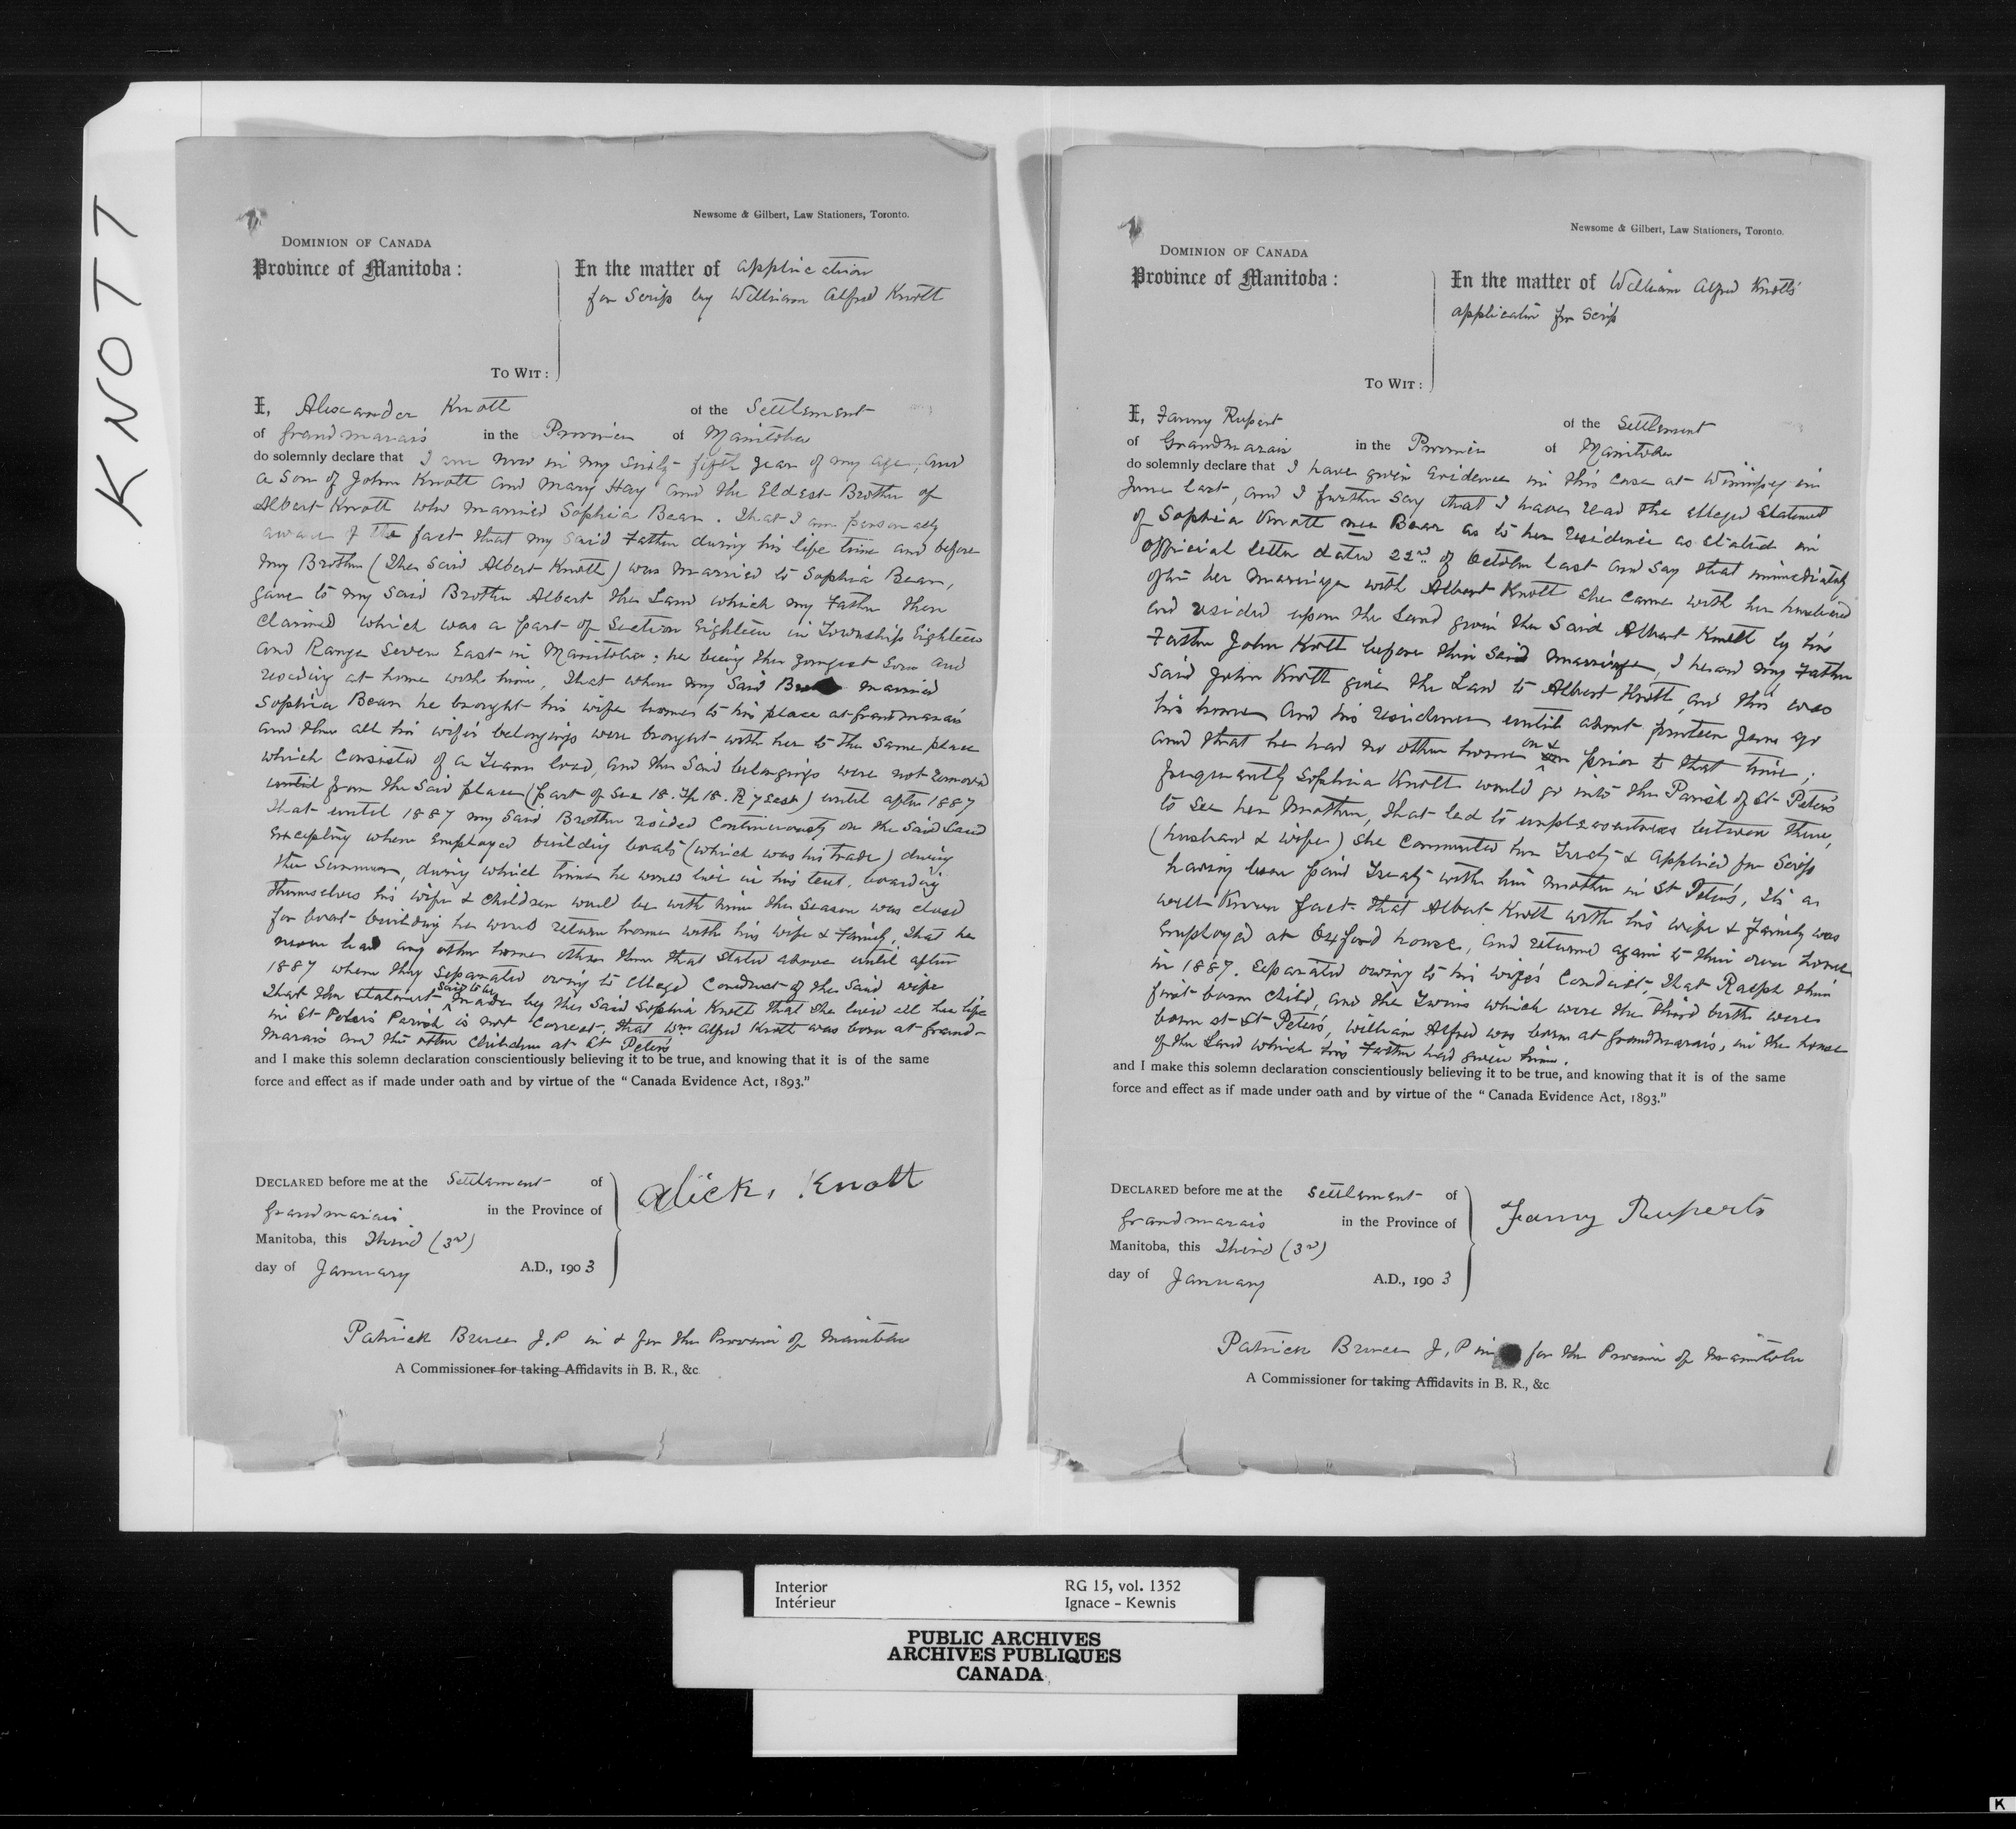 KNOTT
Newsome & Gilbert, Law Stationers, Toronto.
DOMINION OF CANADA
Province of Manitoba :
In the matter of application
for Scrip by William Alfred Knott
TO WIT :
I, Alexander Knott of the Settlement
of Grandmarais in the Province of Manitoba
do solemnly declare that I am now in my sixty-fifth year of my age, and
a Son of John Knott and Mary Hay and the Eldest Brother of
Albert Knott who married Sophia Bear. That I am personally
aware of the fact that my said Father during his life time and before
my Brother (the said Albert Knott) was married to Sophia Bear,
gave to my said Brother Albert the Land which my Father then
claimed which was a part of Section Eighteen in Township Eighteen
and Range Seven East in Manitoba; he being the youngest Son and
residing at home with him, that when my said married
Sophia Bear he brought his wife home to his place at Grandmarais
and then all his wife's belongings were brought with her to the same place
which consisted of a Team load, and the said belongings were not removed
until from the said place (part of Sec 18. Tp 18. R 7 East) until after 1887
that until 1887 my said Brother resided continuously on the said Land
excepting when employed building boats (which was his trade) during
the Summer, during which time he would live in his tent, boarding
themselves his wife & children would be with him the season was closed
for boat building he would return home with his wife & Family, that he
never had any other home other than that stated above until after
1887 when they separated owing to alleged conduct of the said wife
That the statement said to be made by the said Sophia Knott that she lived all her life
in St Peter's Parish is not correct, that Wm Alfred Knott was born at Grand-
marais and the other children at St Peters
and I make this solemn declaration conscientiously believing it to be true, and knowing that it is of the same
force and effect as if made under oath and by virtue of the "Canada Evidence Act, 1893."
DECLARED before me at the Settlement of
Grandmarais in the Province of
Manitoba, this Third (3rd)
day of January A.D., 1903
Alick, Knott
Patrick Bruce J.P in & for the Province of Manitoba
A Commissioner for taking Affidavits in B. R., &c
Newsome & Gilbert, Law Stationers, Toronto.
DOMINION OF CANADA
Province of Manitoba :
In the matter of William Alfred Knott's
application for Scrip
TO WIT :
I, Fanny Rupert of the Settlement
of Grandmarais in the Province of Manitoba
do solemnly declare that I have given Evidence in this case at Winnipeg in
June last, and I further say that I have read the alleged statement
of Sophia Knott nee Bear as to her residence as stated in
official letter dated 22nd of October last and say that immediately
after her marriage with Albert Knott she came with her husband
and resided upon the Land given the said Albert Knott by his
Father John Knott before their said marriage, I heard my Father
said John Knott give the Land to Albert Knott, and this was
his home and his residence until about fourteen years ago
and that he had no other home on & prior to that time;
frequently Sophia Knott would go into the Parish of St Peter's
to see her mother, that led to unpleasantness between them,
(husband & wife) she commuted her Treaty & applied for Scrip
having been paid Treaty with her mother in St Peter's, Its a
well known fact that Albert Knott with his wife & Family was
employed at Oxford house, and returned again to their own home
in 1887. separated owing to his wife's conduct, That Ralph their
first born child, and the Twins which were the third birth were
born at St Peter's, William Alfred was born at Grandmarais, in the house
of the Land which his Father had given him.
and I make this solemn declaration conscientiously believing it to be true, and knowing that it is of the same
force and effect as if made under oath and by virtue of the "Canada Evidence Act, 1893."
DECLARED before me at the Settlement of
Grandmarais in the Province of
Manitoba, this Third (3rd)
day of January A.D., 1903
Fanny Ruperts
Patrick Bruce J,P in for the Province of Manitoba
A Commissioner for taking Affidavits in B. R., &c
Interior RG 15, vol. 1352
Intérieur Ignace - Kewnis
PUBLIC ARCHIVES
ARCHIVES PUBLIQUES
CANADA
K